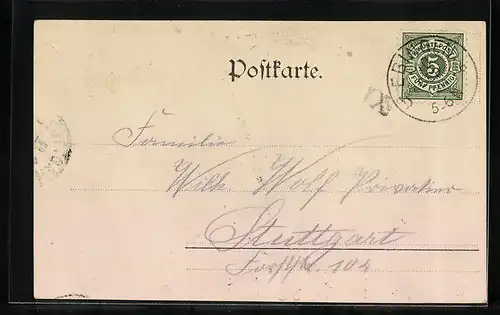 5
FÜNF PFENNIG
5-6
Postkarte.
Familie
Wilh. Wolf Privatier
Stuttgart
104